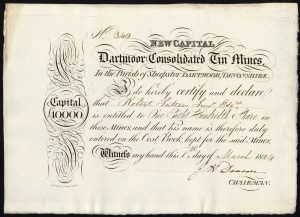 No. 340
NEW CAPITAL
Dartmoor Consolidated Tin Mines,
In the Parish of Sheepstor, DARTMOOR, DEVONSHIRE.
I do hereby certify and declare
that Robert
is entitled to One Part or Share in
these Mines, and that his name is therefore duly
entered on the Cost Book kept for the said Mines.
Witness my hand this day of March
CHAIRMAN.
Capital
10000